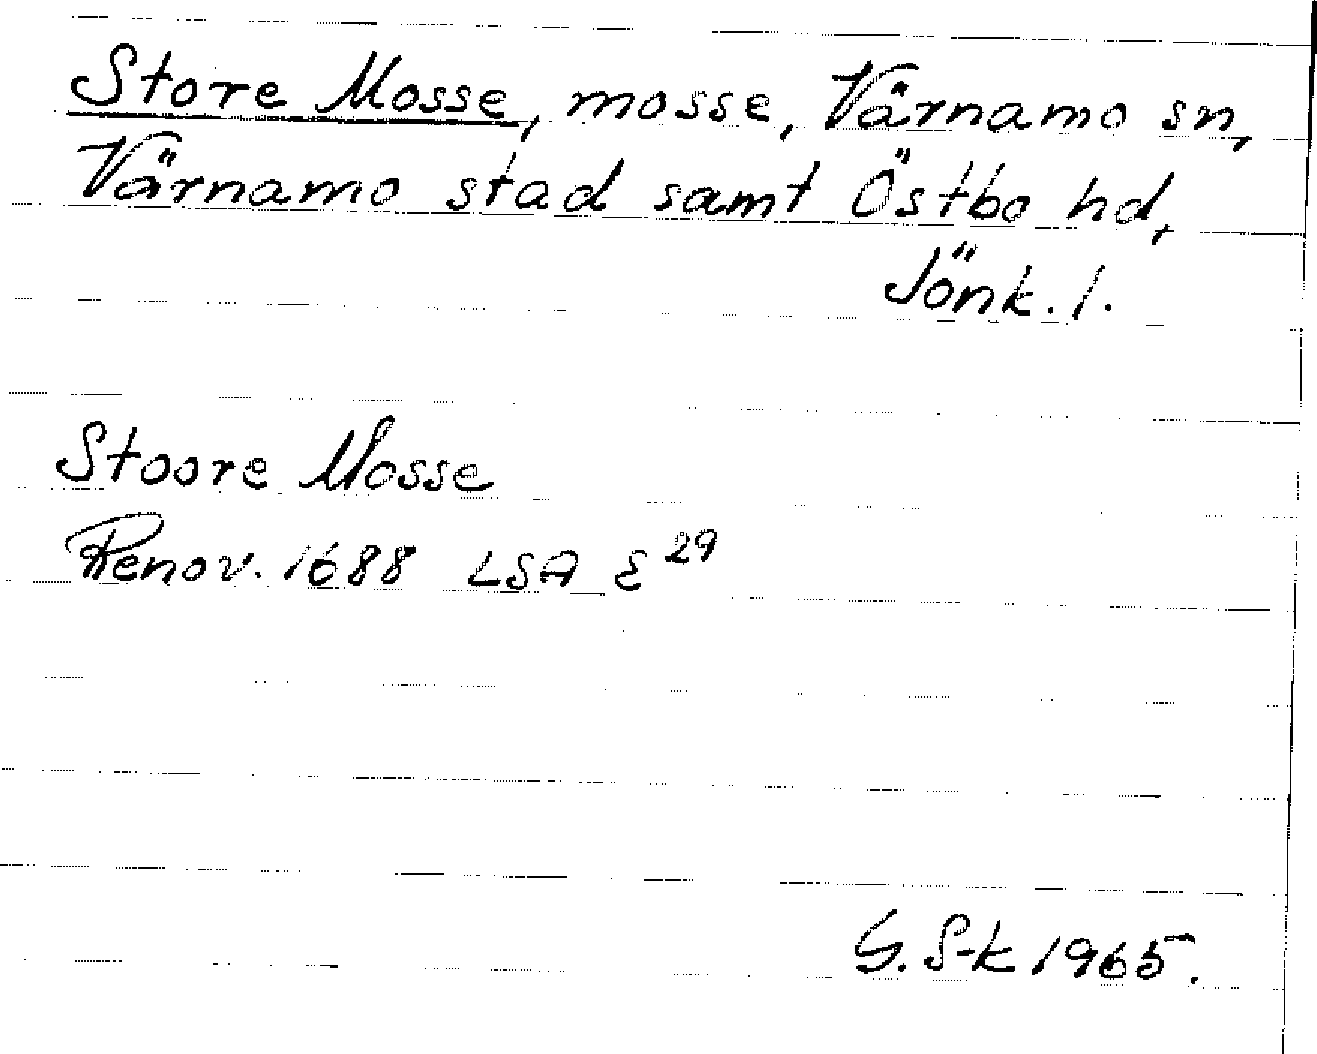 Store Mosse, mosse, Värnamo sn,
Värnamo stad samt Östbo hd,
Jönk. l.
Stoore Mosse
Renov. 1688 LSA E 29
G. S-k 1965.